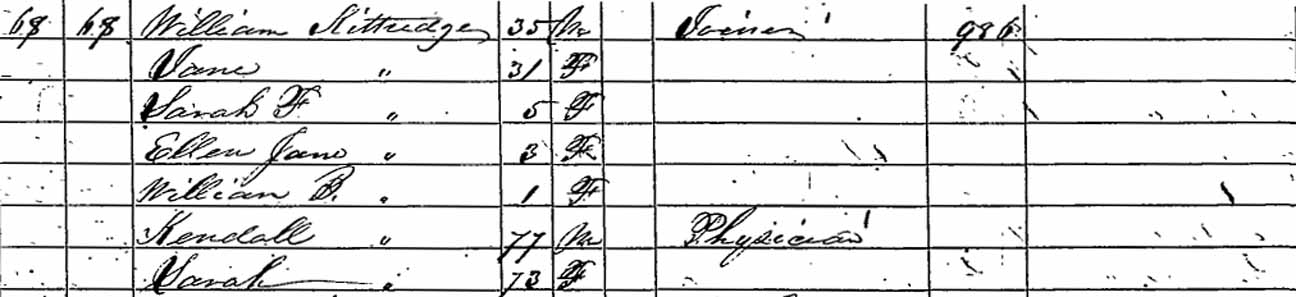 68 68 William Kittredge 35 M Joiner 986
Jane " 31 F
Sarah F " 5 F
Ellen Jane " 3 F
William B. " 1 F
Kendall " 77 M Physician
Sarah " 73 F